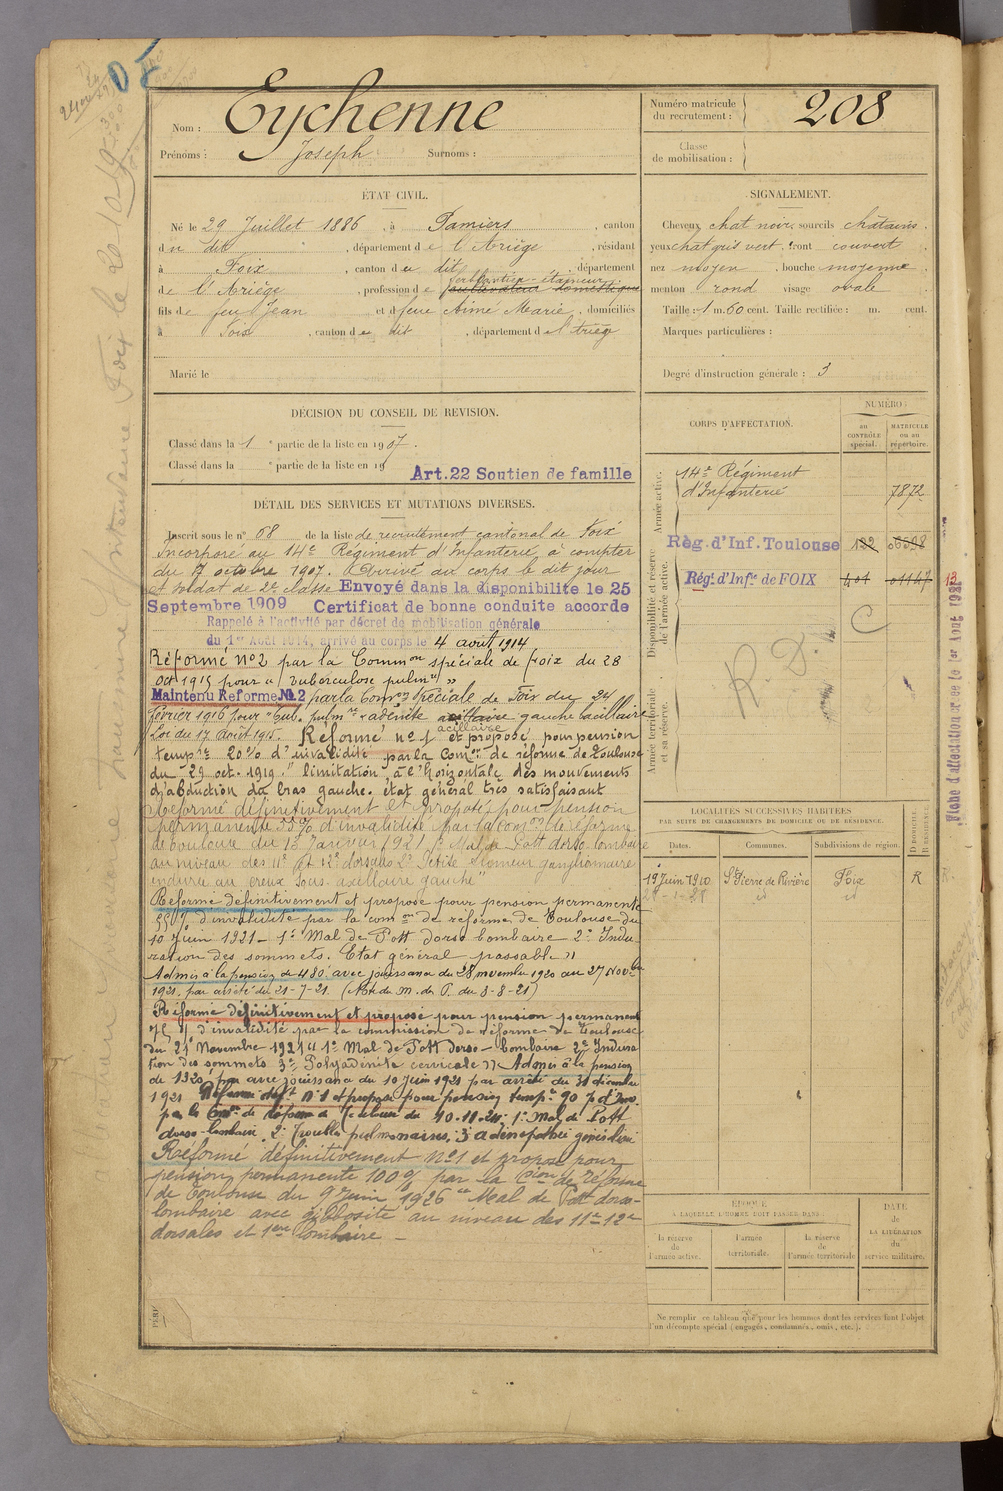 Nom : Eychenne
Prénoms : Joseph Surnoms :
Numéro matricule du recrutement : 208
Classe de mobilisation :
ÉTAT CIVIL.
Né le 29 Juillet 1886, à Pamiers, canton
du dit, département de l'Ariège, résidant
à Foix, canton du dit, département
de l'Ariège, profession de ferblantier - étameur cultivateur domestique
fils de feu Jean et d feue Aime Marie, domiciliés
à Foix, canton du dit, département d l'Ariège
Marié le
SIGNALEMENT.
Cheveux chat noir, sourcils châtains,
yeux chat gris vert, front couvert
nez moyen, bouche moyenne,
menton rond visage ovale
Taille : 1 m. 60 cent. Taille rectifiée : m. cent.
Marques particulières :
Degré d'instruction générale : 3
DÉCISION DU CONSEIL DE REVISION.
Classé dans la 1e partie de la liste en 1907.
Classé dans la e partie de la liste en 19
Art.22 Soutien de famille
DÉTAIL DES SERVICES ET MUTATIONS DIVERSES.
Inscrit sous le n° 68 de la liste de recrutement cantonal de Foix
Incorporé au 14e Régiment d'Infanterie à compter
du 7 octobre 1907. Arrivé au corps le dit jour
et soldat de 2e classe Envoyé dans la disponibilité le 25
Septembre 1909 Certificat de bonne conduite accorde
Rappelé à l'activité par décret de mobilisation générale
du 1er Août 1914, arrivé au corps le 4 août 1914
Réformé n°2 par la Common spéciale de Foix du 28
oct 1915 pour "tuberculose pulmre"
Maintenu Reformé №2 par la Comon spéciale de Foix du 24
février 1916 pour "Tub. pulmre adénite axillaire gauche bacillaire
Loi du 17 Août 1915. Réformé n°1 et proposé pour pension
tempre 20% d'invalidité par la Comon de réforme de Toulouse
du 29 oct. 1919. "limitation à l'horizontale des mouvements
d'abduction du bras gauche. état général très satisfaisant
Réformé définitivement et proposé pour pension
permanente 55% d'invalidité par la Comon de réforme
de Toulouse du 13 Janvier 1921 1° Mal de Pott dorso lombaire
au niveau des 11e et 12e dorsales 2° Petite tumeur ganglionnaire
indurée au creux sous-axillaire gauche"
Réformé définitivement et proposé pour pension permanente
55% d'invalidité par la comon de réforme de Toulouse du
10 Juin 1921 - 1° Mal de Pott dorso lombaire 2° Indu-
ration des sommets. Etat général passable "
Admis à la pension de 480. avec jouissance du 28 novembre 1920 au 27 Novbre
1921. par arrêté du 21-7-21. (Not. du m. des P. du 8-8-21)
Réformé définitivement et proposé pour pension permanente
75 % d'invalidité par la commission de réforme de Toulouse
du 21 Novembre 1921 "1° Mal de Pott dorso - lombaire 2° Indura
tion des sommets 3° Polyadénite cervicale" Admis à la pension
de 1320 fr avec jouissance du 10 Juin 1921 par arrêté du 31 décembre
1921 Réformé deft N°1 et proposé pour pension tempre 90 p % Inv.
par la Comon de réforme de Toulouse du 10.11.24; 1° Mal de Pott
dorso-lombaire 2° Troubles pulmonaires, 3° adénopathie généralisée
Réformé définitivement n°1 et proposé pour
pension permanente 100% par la Cion de réforme
de Toulouse du 9 Juin 1926 "Mal de Pott dorso-
lombaire avec gibbosité au niveau des 11e 12e
dorsales et 1ère lombaire -
CORPS D'AFFECTATION.
NUMÉRO :
au CONTRÔLE spécial.
MATRICULE ou au répertoire.
Armée active.
14e Régiment d'Infanterie 7872
Disponibilité et réserve de l'armée active.
Règ. d'Inf. Toulouse 132
Régt d'Infie de FOIX 401 01147
R. D.
Armée territoriale et sa réserve.
LOCALITÉS SUCCESSIVES HABITÉES
PAR SUITE DE CHANGEMENTS DE DOMICILE OU DE RÉSIDENCE.
Dates. Communes. Subdivisions de région. D DOMICILE. R RÉSIDENCE.
19 Juin 1910 St Pierre de Rivière Foix R
id id
ÉPOQUE
À LAQUELLE L'HOMME DOIT PASSER DANS :
la réserve de l'armée active.
l'armée territoriale.
la réserve de l'armée territoriale
DATE de LA LIBÉRATION du service militaire.
Ne remplir ce tableau que pour les hommes dont les services font l'objet
d'un décompte spécial (engagés, condamnés, omis, etc.).